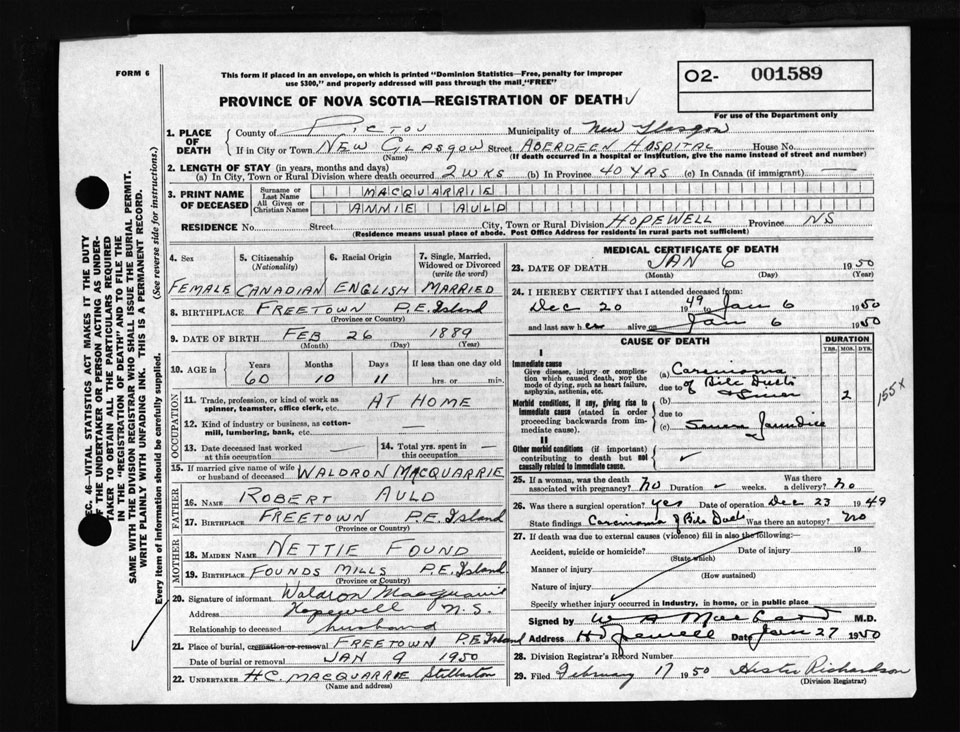 FORM 6
This form if placed in an envelope, on which is printed "Dominion Statistics—Free, penalty for improper
use $300," and properly addressed will pass through the mail "FREE"
O2- 001589
For use of the Department only
PROVINCE OF NOVA SCOTIA—REGISTRATION OF DEATH
1. PLACE OF DEATH County of PICTOU Municipality of New Glasgow
If in City or Town NEW GLASGOW Street ABERDEEN HOSPITAL House No.
(Name) (If death occurred in a hospital or institution, give the name instead of street and number)
2. LENGTH OF STAY (in years, months and days)
(a) In City, Town or Rural Division where death occurred 2 WKS (b) In Province 40 YRS (c) In Canada (if immigrant) —
3. PRINT NAME OF DECEASED Surname or Last Name MACQUARRIE
All Given or Christian Names ANNIE AULD
RESIDENCE No. Street City, Town or Rural Division HOPEWELL Province NS
(Residence means usual place of abode. Post Office Address for residents in rural parts not sufficient)
4. Sex 5. Citizenship (Nationality) 6. Racial Origin 7. Single, Married, Widowed or Divorced (write the word)
FEMALE CANADIAN ENGLISH MARRIED
8. BIRTHPLACE FREETOWN P.E. Island
(Province or Country)
9. DATE OF BIRTH FEB 26 1889
(Month) (Day) (Year)
10. AGE in Years Months Days If less than one day old
60 10 11 hrs. or min.
OCCUPATION
11. Trade, profession, or kind of work as spinner, teamster, office clerk, etc. AT HOME
12. Kind of industry or business, as cotton-mill, lumbering, bank, etc. —
13. Date deceased last worked at this occupation — 14. Total yrs. spent in this occupation —
15. If married give name of wife or husband of deceased WALDRON MACQUARRIE
FATHER
16. NAME ROBERT AULD
17. BIRTHPLACE FREETOWN P.E. Island
(Province or Country)
MOTHER
18. MAIDEN NAME NETTIE FOUND
19. BIRTHPLACE FOUNDS MILLS P.E. Island
(Province or Country)
20. Signature of informant Waldron Macquarrie
Address Hopewell N.S.
Relationship to deceased husband
21. Place of burial, cremation or removal FREETOWN P.E Island
Date of burial or removal JAN 9 1950
22. UNDERTAKER H.C. MACQUARRIE Stellarton
(Name and address)
MEDICAL CERTIFICATE OF DEATH
23. DATE OF DEATH JAN 6 1950
(Month) (Day) (Year)
24. I HEREBY CERTIFY that I attended deceased from:
Dec 20 49 to Jan 6 1950
and last saw her alive on Jan 6 1950
CAUSE OF DEATH DURATION
YRS. MOS. DYS.
I
Immediate cause
Give disease, injury or complication which caused death, NOT the mode of dying, such as heart failure, asphyxia, asthenia, etc.
(a) Carcinoma
due to of Bile Ducts
Morbid conditions, if any, giving rise to immediate cause (stated in order proceeding backwards from immediate).
(b) & Liver 2
due to
(c) Severe Jaundice
155x
II
Other morbid conditions (if important) contributing to death but not causally related to immediate cause.
25. If a woman, was the death associated with pregnancy? No Duration weeks. Was there a delivery? No
26. Was there a surgical operation? yes Date of operation Dec 23 1949
State findings Carcinoma of Bile Ducts Was there an autopsy? No
27. If death was due to external causes (violence) fill in also the following:—
Accident, suicide or homicide? Date of injury 19
(State which)
Manner of injury
(How sustained)
Nature of injury
Specify whether injury occurred in industry, in home, or in public place
Signed by M.D.
Address Hopewell Date Jan 27 1950
28. Division Registrar's Record Number
29. Filed February 17 1950 Hester Richardson
(Division Registrar)
SEC. 46—VITAL STATISTICS ACT MAKES IT THE DUTY
OF THE UNDERTAKER OR PERSON ACTING AS UNDER-
TAKER TO OBTAIN ALL THE PARTICULARS REQUIRED
IN THE "REGISTRATION OF DEATH" AND TO FILE THE
SAME WITH THE DIVISION REGISTRAR WHO SHALL ISSUE THE BURIAL PERMIT.
WRITE PLAINLY WITH UNFADING INK. THIS IS A PERMANENT RECORD.
Every item of information should be carefully supplied. (See reverse side for instructions.)